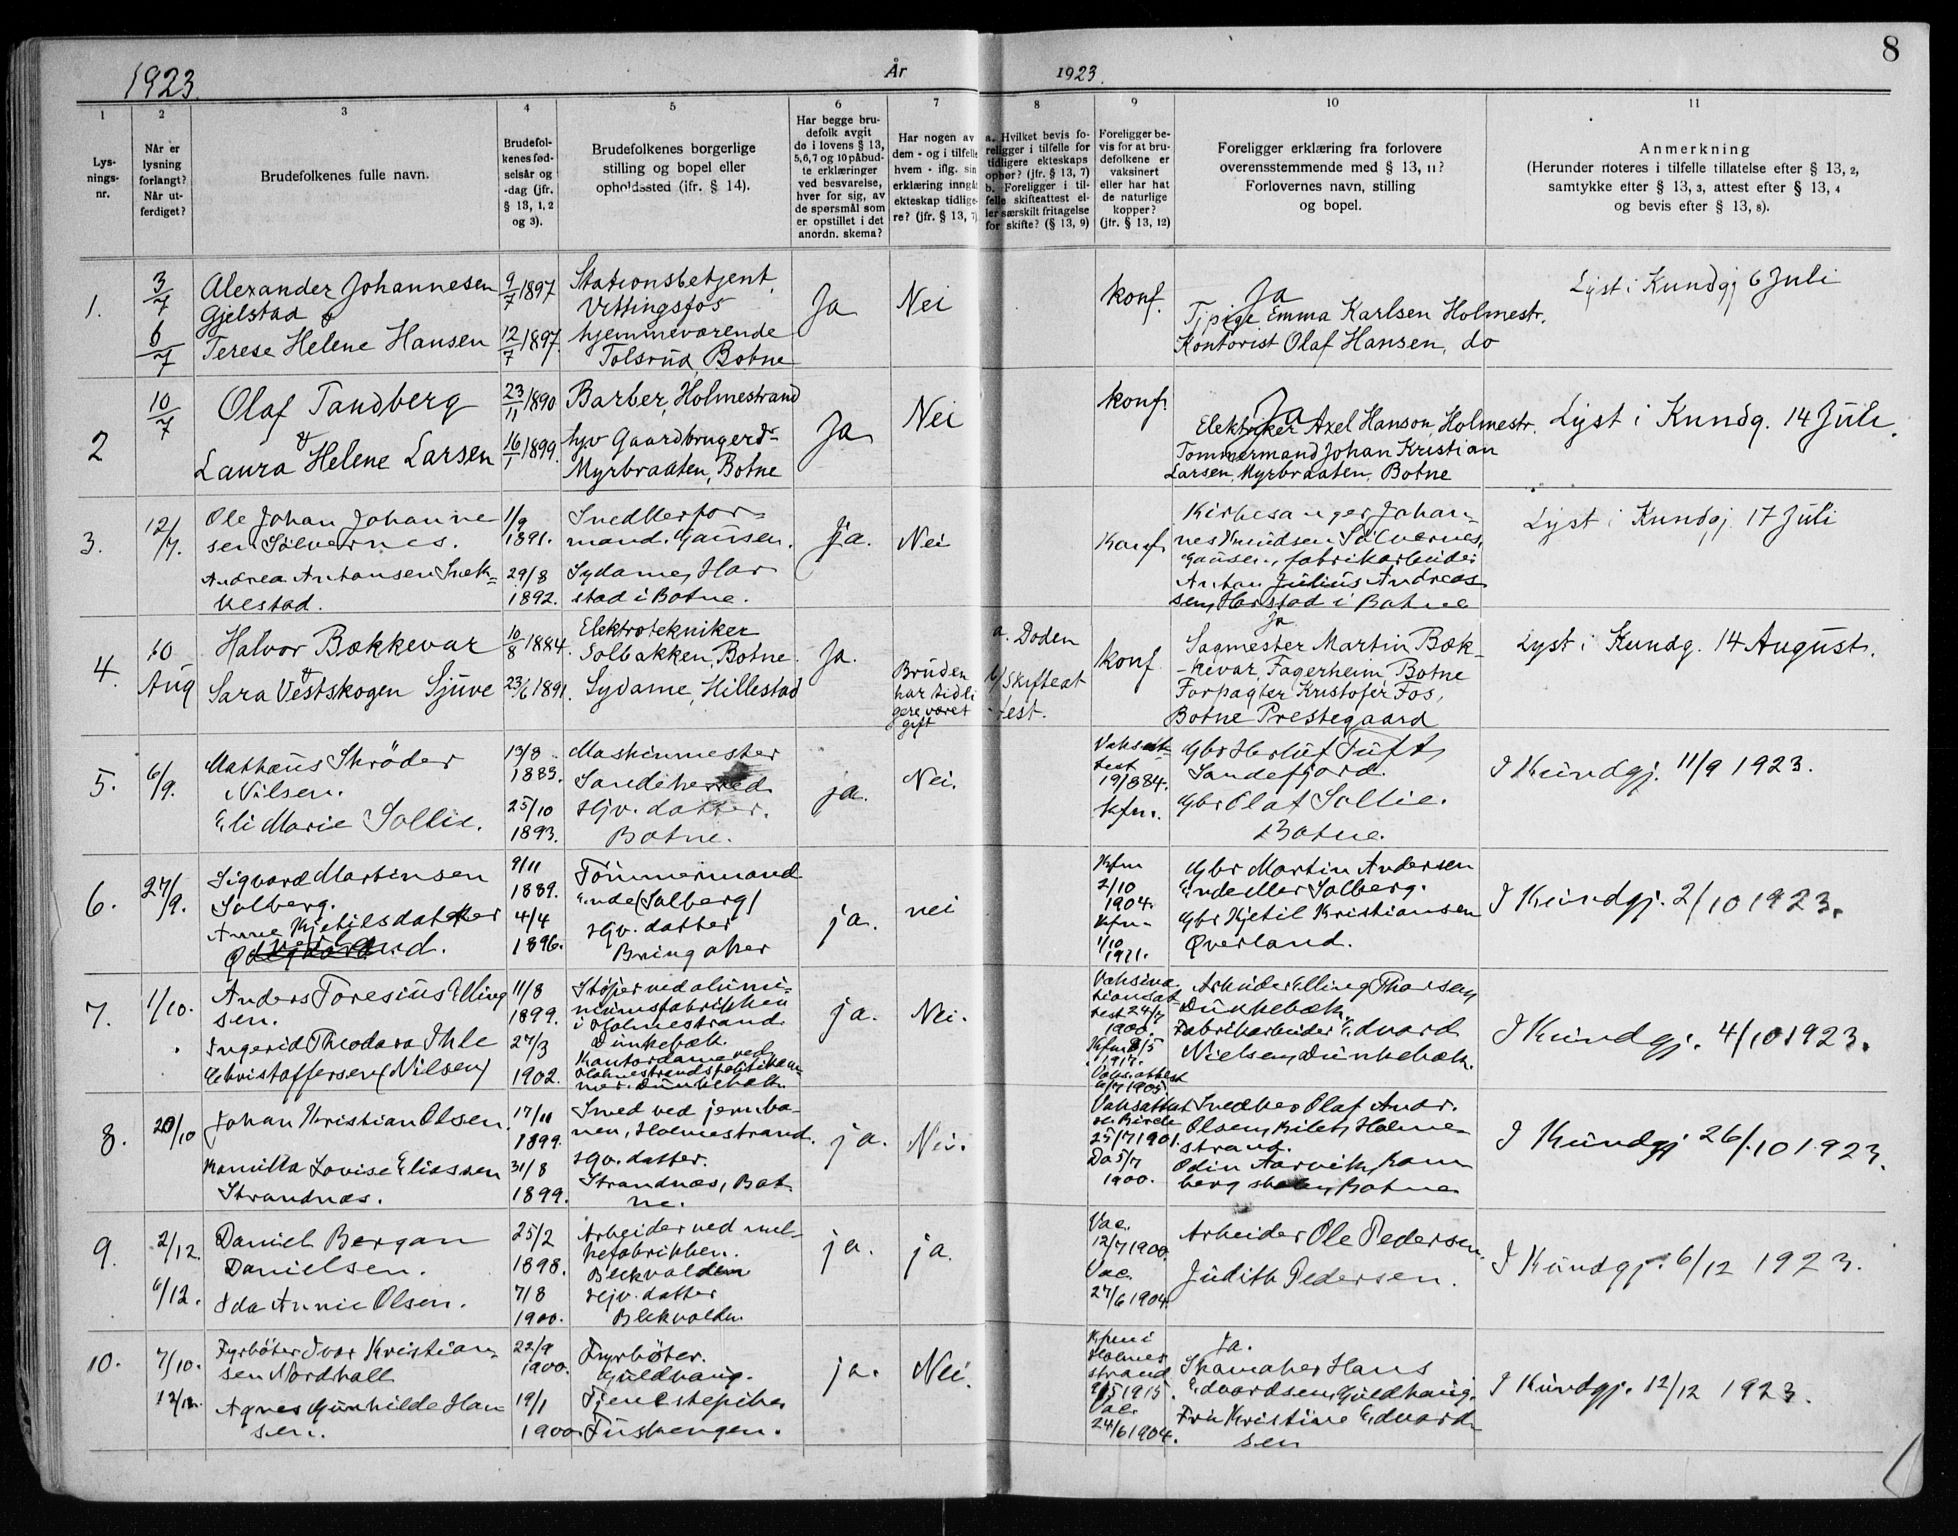 8
1923.
År
1923.
1
2
3
4
5
6
7
8
9
10
11
Lys-
nings-
nr.
Når er
lysning
forlangt?
Når ut-
ferdiget?
Brudefolkenes fulle navn.
Brudefol-
kenes fød-
selsår og
-dag (jfr.
§ 13, 1, 2
og 3).
Brudefolkenes borgerlige
stilling og bopel eller
opholdssted (jfr. § 14).
Har begge bru-
defolk avgit
de i lovens § 13,
5, 6, 7 og 10 påbud-
te erklæringer
ved besvarelse,
hver for sig, av
de spørsmål som
er opstillet i det
anordn. skema?
Har nogen av
dem - og i tilfelle
hvem - iflg. sin
erklæring inngåt
ekteskap tidlige-
re? (jfr. § 13, 7)
a. Hvilket bevis fo-
religger i tilfelle for
tidligere ekteskaps
ophør? (jfr. § 13, 7)
b. Foreligger i til-
felle skifteattest el-
ler særskilt fritagelse
for skifte? (§ 13, 9)
Foreligger be-
vis for at bru-
defolkene er
vaksinert
eller har hat
de naturlige
kopper?
(jfr. § 13, 12)
Foreligger erklæring fra forlovere
overensstemmende med § 13, 11?
Forlovernes navn, stilling
og bopel.
Anmerkning
(Herunder noteres i tilfelle tillatelse efter § 13, 2,
samtykke efter § 13, 3, attest efter § 13, 4
og bevis efter § 13, 8).
1.
3/7
6/7
Alexander Johannesen
Gjelstad &
Terese Helene Hansen
9/7 1897
12/7 1897.
Stationsbetjent,
Vittingsfos
hjemmeværende
Tolsrud, Botne
Ja
Nei
konf.
Ja
Tjpige Emma Karlsen Holmestr.
Kontorist Olaf Hansen, do
Lyst i Kundgj 6 Juli
2
10/7
Olaf Tandberg
&
Laura Helene Larsen
23/11 1890
16/1 1899.
Barber, Holmestrand
hjv Gaardbrugerd-
Myrbraaten, Botne
Ja
Nei
konf.
Ja
Elektriker Axel Hanson, Holmestr.
Tømmermand Johan Kristian
Larsen, Myrbraaten, Botne
Lyst i Kundg. 14 Juli.
3.
12/7.
Ole Johan Johanne
sen Sølvernes.
Andrea Antonsen Snek-
kestad.
1/9
1891.
29/8
1892.
Snedkerfor-
mand. Gausen.
Sydame, Har
stad i Botne.
Ja.
Nei
Konf.
Kirkesanger Johan-
nes Knudsen Sølvernes,
Gausen, fabrikarbeider
Anton Julius Andreas
sen, Harstad i Botne
Lyst i Kundgj 17 Juli
4.
10
Aug
Halvor Bækkevar
&
Sara Vestskogen Sjuve
10/8 1884.
23/6 1891.
Elektrotekniker
Solbakken, Botne.
Sydame, Hillestad
Ja.
Bruden
har tidli
gere været
gift
a. Døden
b/ skifteat
-test.
konf
Ja
Sagmester Martin Bæk-
-kevar, Fagerheim Botne
Forpagter Kristofer Fos,
Botne Prestegaard
Lyst i Kundg. 14 August.
5.
6/9.
Mathæus Skröder
Nilsen.
Eli Marie Sollie.
13/8
1883.
25/10
1893.
Maskinmester
Sandeherred.
Hjv. datter.
Botne.
ja.
Nei.
Vaksat-
test
19/8 84.
Kfn.
Gbr Herluf Tuft,
Sandefjord.
Gbr Olaf Sollie.
Botne.
I Kundgj. 11/9 1923.
6.
27/9.
Sigvard Martinsen
Solberg.
Anne Kjetilsdatter
9/11
1889.
4/4
1896.
Tömmermand
Ende (Solberg)
Hjv. datter
Bringaker
ja.
nei
Kfm
2/10
1904.
Kfn-
1/10
1911.
Gbr Martin Andersen
Ende eller Solberg.
Gbr Kjetil Kristiansen
Øverland.
I Kundgj. 2/10 1923.
7.
1/10.
Anders Toresius Elling
sen.
Ingerid Theodora Ihle
Christoffersen (Nilsen)
11/8
1899.
27/3
1902.
Støper ved alumi-
niumsfabrikken
i Holmestrand.
Dunkebæk.
Kontordame ved
Holmestrands politikam-
mer. Dunkebæk.
ja.
Nei.
Vaksina
tionsat-
test 24/7
1900.
Kfm 8/5
1917.
Vaks. attest
6/7 1905
Arbeider Elling Thorsen,
Dunkebæk.
Fabrikarbeider Edvard
Nielsen, Dunkebæk.
I Kundgj. 4/10 1923.
8.
20/10
Johan Kristian Olsen.
Kamilla Lovise Eliassen
Strandnæs.
17/11
1899.
31/8
1899.
Smed ved jernba-
nen, Holmestrand.
Hjv. datter.
Strandnæs, Bot
ne.
ja.
Nei.
Vaksattest
25/7 1901.
Do 5/7
1900.
Snedker Olaf Andr.
Olsen, Kilen, Holme
strand.
Odin Aarvik, Ram
berg skole, Botne
I Kundgj 26/10 1923.
9.
2/12.
6/12.
Daniel Bergan
Danielsen.
Ida Annie Olsen.
25/2
1898.
7/8
1900.
Arbeider ved mel-
kefabrikken.
Blekvolden
Hjv. datter
Blekvolden
ja.
ja.
Vac.
12/7 1900.
Vac.
27/6 1904.
Arbeider Ole Pedersen.
Judith Pedersen.
I Kundgj. 6/12 1923.
10.
7/10.
12/12.
Fyrböter Ivar Kristian-
sen Nordhall
Agnes Gunhilde Han
sen.
22/9
1900.
19/1
1900.
Fyrböter.
Guldhaug.
Tjenestepike
Fuskengen.
ja.
Nei.
Kfm i
Holmes
strand
9/5 1915.
Vac.
24/6 1904.
Ja.
Skomaker Hans
Edvardsen, Guldhaug.
Fru Kristine Edvard
sen
I Kundgj. 12/12 1923.